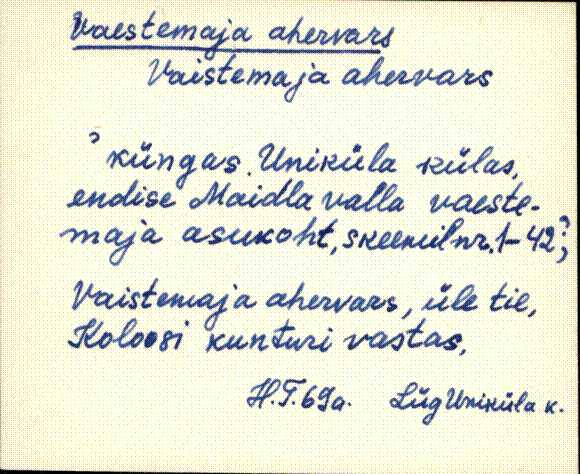 Vaestemaja ahervars
Vaistemaja ahervars
? küngas Uniküla külas,
endise Maidla valla vaeste-
maja asukoht, skeemil nr. 1-42?;
Vaistemaja ahervars, üle tie,
Koloosi kunturi vastas.
H.T. 69a. Lüg Uniküla k.